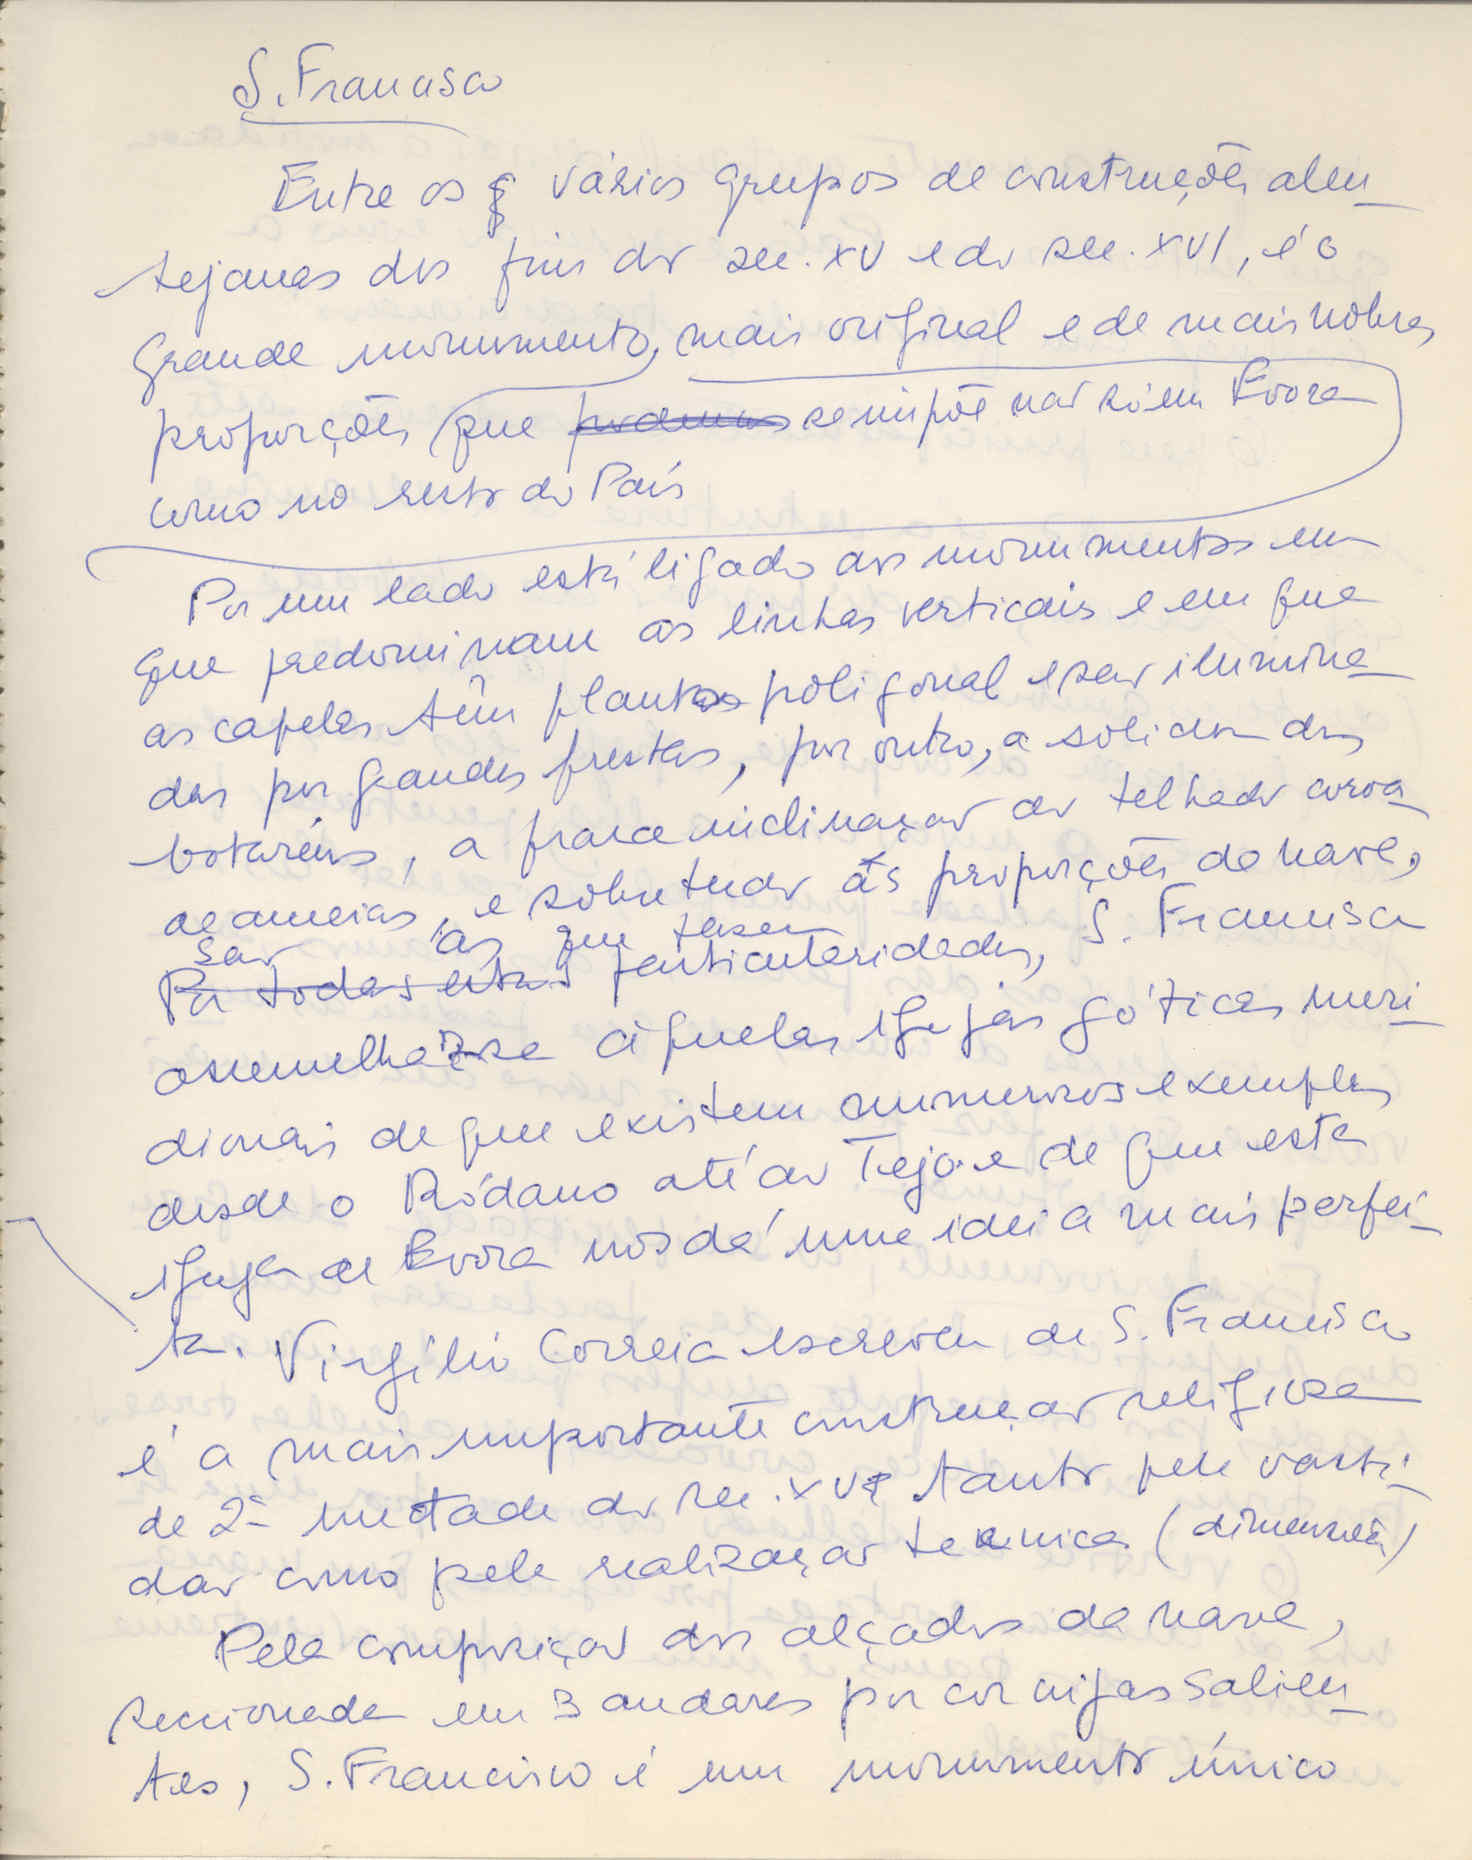 S. Francisco
Entre os vários grupos de construções alen-
tejanas dos fins do séc. XV e do séc. XVI, é o
grande monumento, mais original e de mais nobres
proporções que podemos se impõe não só em Evora
como no resto do País
Por um lado está ligado aos monumentos em
que predominam as linhas verticais e em que
as capelas têm plantas poligonal e são ilumina-
das por grandes frestas, por outro, a solidez dos
botaréus, a fraca inclinação do telhado coroa-
de ameias, e sobretudo as proporções da nave,
são as que fazem
Por todas estas particularidades, S. Francisco
assemelhar-se àquelas igrejas góticas meri-
dionais de que existem numerosos exemplos
desde o Ródano até ao Tejo e de que esta
igreja de Evora nos dá uma ideia mais perfei-
ta. Virgílio Correia escreveu de S. Francisco
é a mais importante construção religiosa
de 2ª metade do séc. XV tanto pela vasti-
dão como pela realização tecnica (dimensões)
Pela composição dos alçados da nave,
seccionada em 3 andares por cornijas salien-
tes, S. Francisco é um monumento único